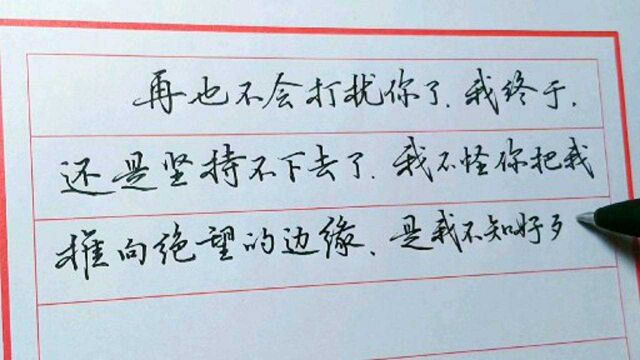 再也不会打扰你了.我终于.
还是坚持不下去了.我不怪你把我
推向绝望的边缘、是我不知好歹